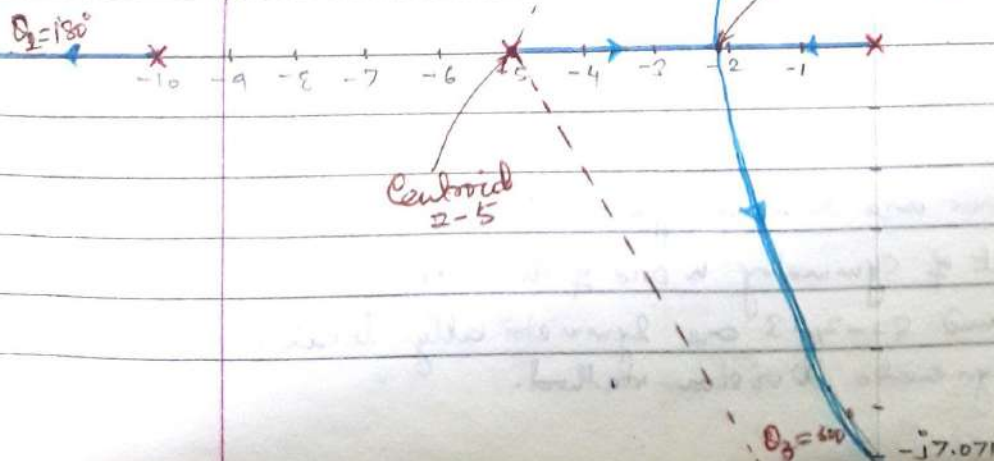 θ2=180°
-10 -9 -8 -7 -6 -5 -4 -3 -2 -1
Centroid
=-5
θ3=300
-j7.071